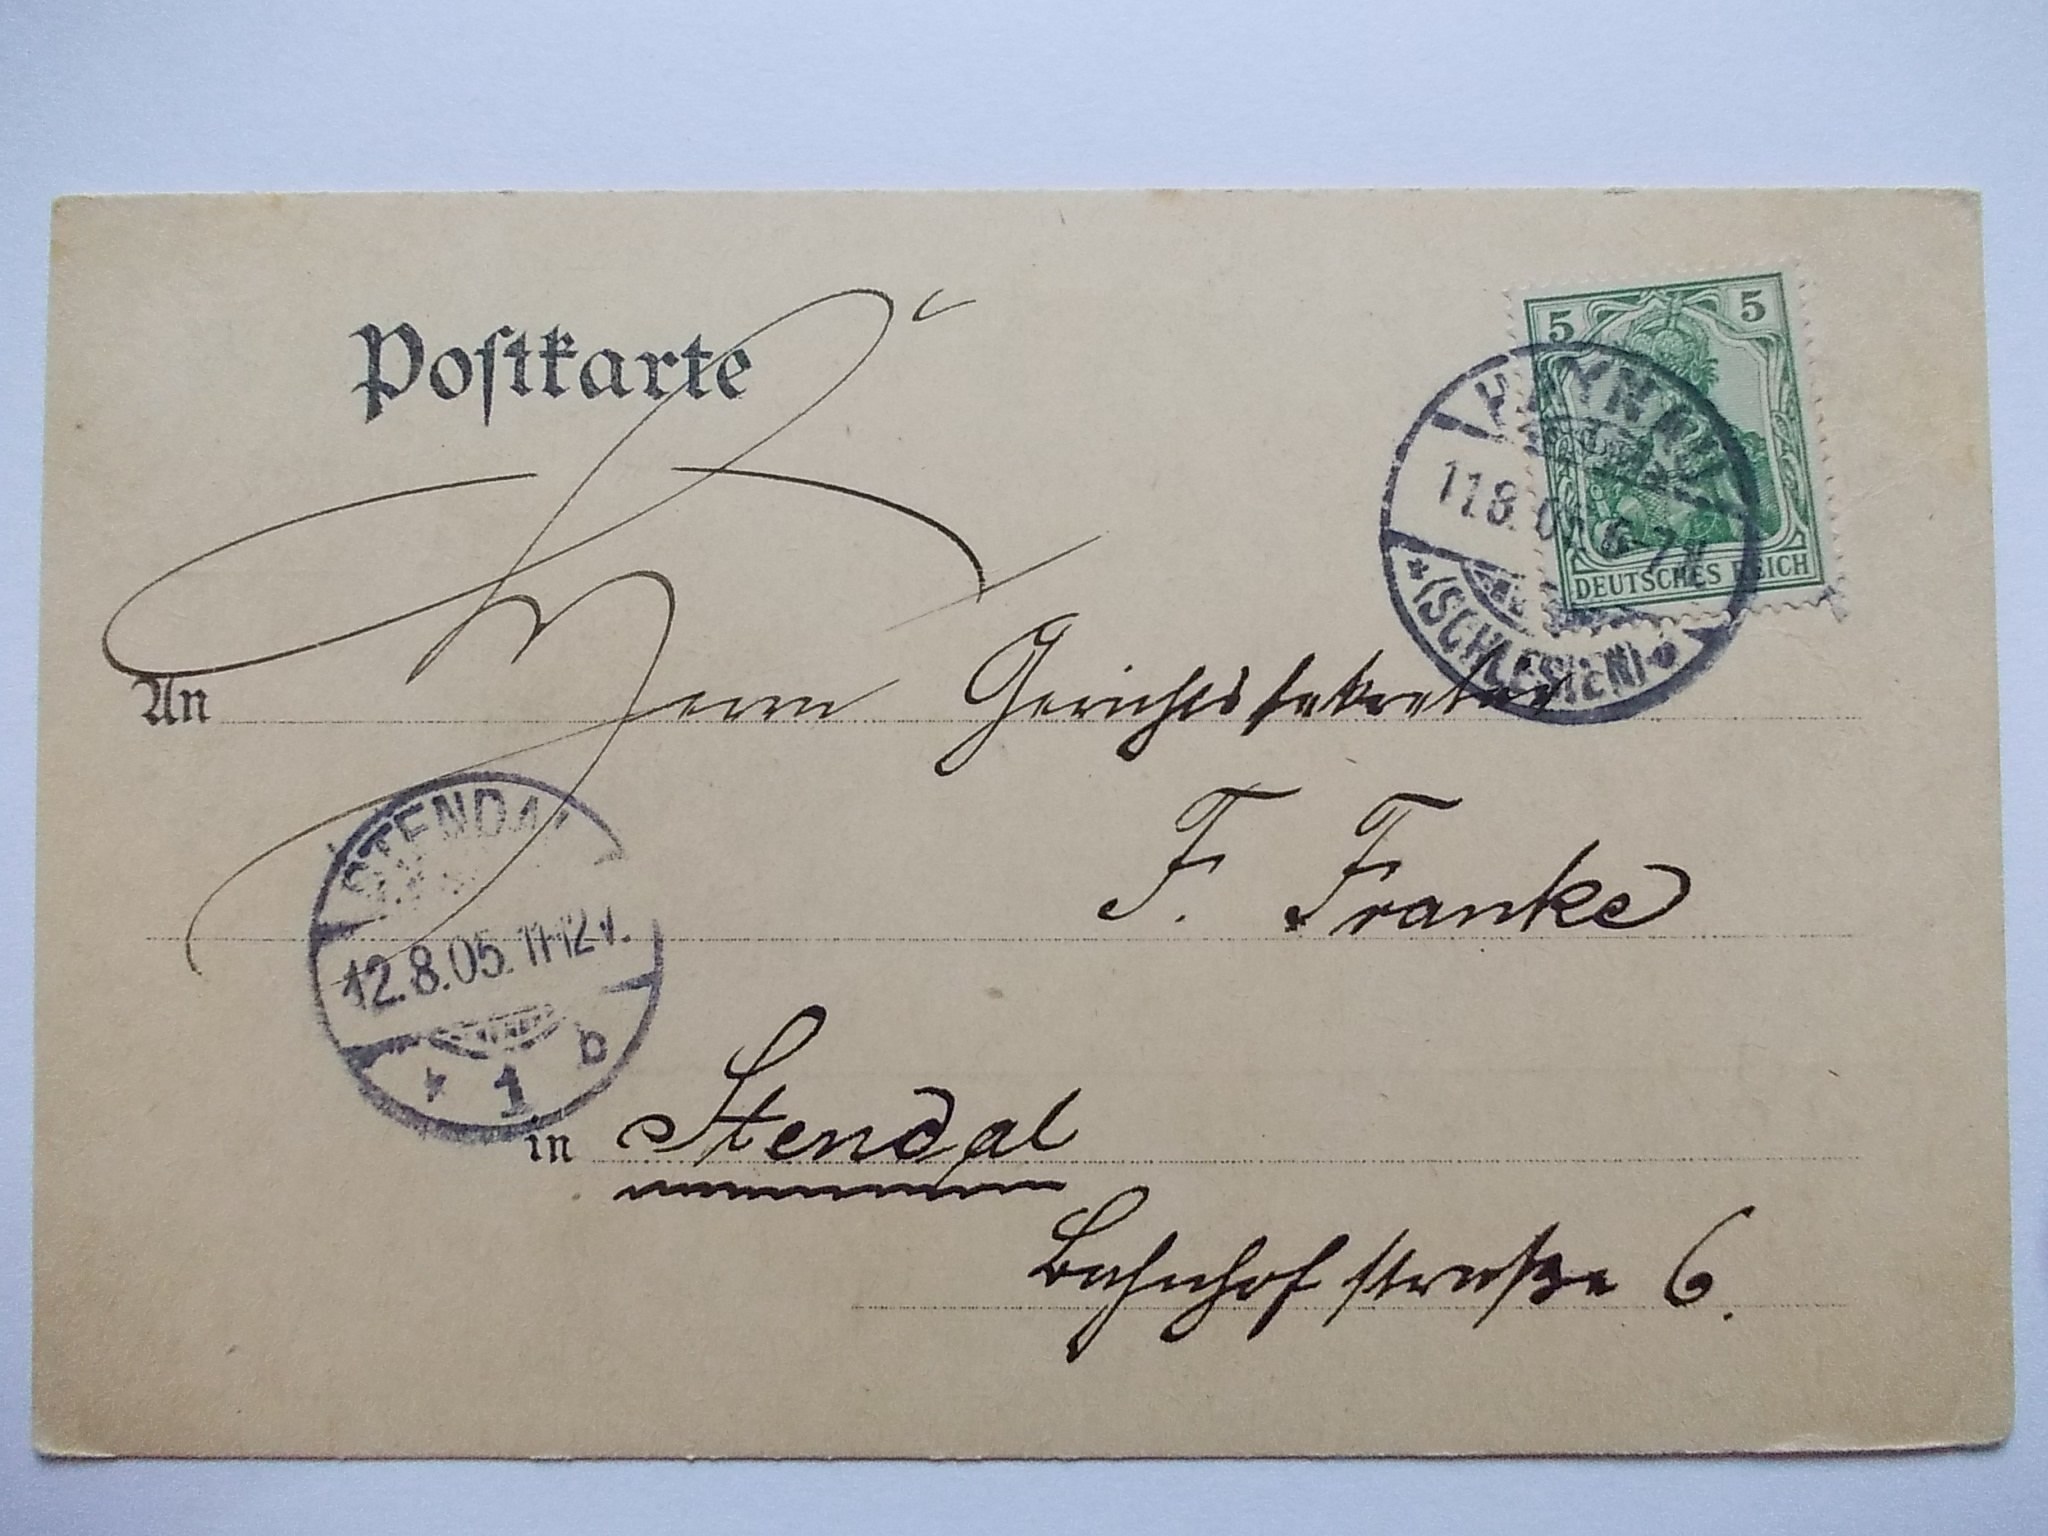 Postkarte
5 5
DEUTSCHES REICH
HAYNAU
11.8.
(SCHLESIEN)
An Herrn Gerichtssekretär
F. Franke
STENDAL
12.8.05. 11-12V.
* 1 b
in Stendal
Bahnhofstraße 6.